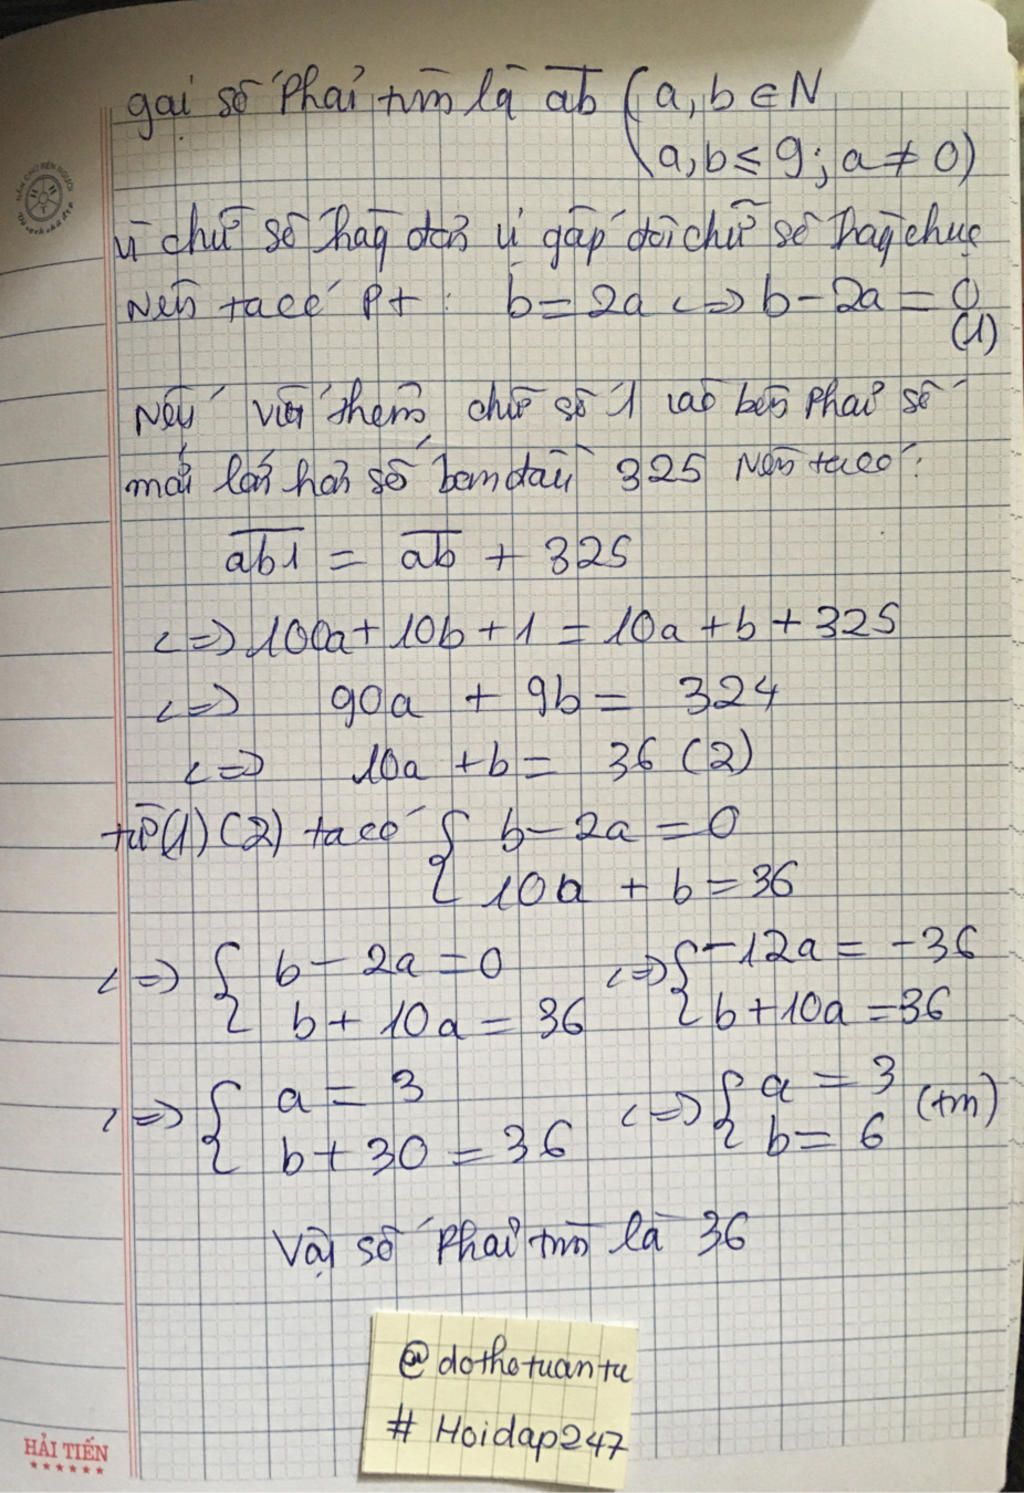 gọi số phải tìm là ab (a, b ∈ N
a, b ≤ 9; a ≠ 0)
vì chữ số hàng đơn vị gấp đôi chữ số hàng chục
Nên ta có Pt : b = 2a <=> b - 2a = 0
(1)
Nếu viết thêm chữ số 1 vào bên phải số
mới lớn hơn số ban đầu 325 Nên ta có :
ab1 = ab + 325
<=> 100a + 10b + 1 = 10a + b + 325
<=> 90a + 9b = 324
<=> 10a + b = 36 (2)
từ (1) (2) ta có { b - 2a = 0
10a + b = 36
<=> { b - 2a = 0 <=> { -12a = -36
b + 10a = 36 b + 10a = 36
<=> { a = 3 <=> { a = 3 (tm)
b + 30 = 36 b = 6
Vậy số phải tìm là 36
@dothotuantu
# Hoidap247
HẢI TIẾN